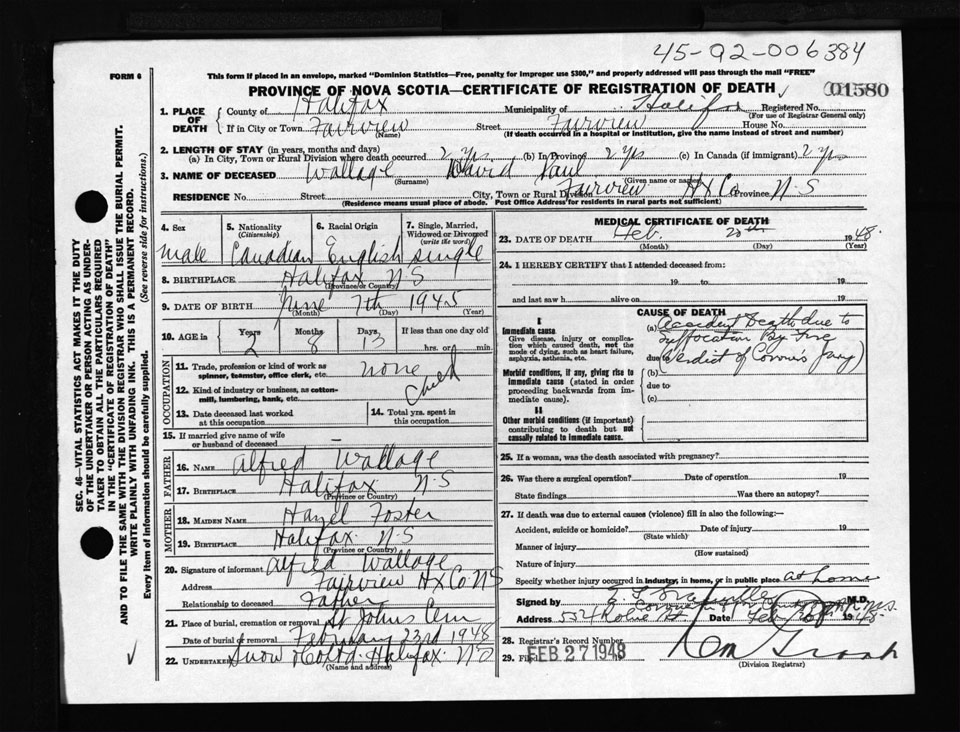 45-92-006384
FORM 6
This form if placed in an envelope, marked "Dominion Statistics—Free, penalty for improper use $300," and properly addressed will pass through the mail "FREE"
PROVINCE OF NOVA SCOTIA—CERTIFICATE OF REGISTRATION OF DEATH
01580
1. PLACE OF DEATH
County of Halifax Municipality of Halifax Registered No.
(For use of Registrar General only)
If in City or Town Fairview Street Fairview House No.
(Name) (If death occurred in a hospital or institution, give the name instead of street and number)
2. LENGTH OF STAY (in years, months and days)
(a) In City, Town or Rural Division where death occurred 2 yrs (b) In Province 2 yrs (c) In Canada (if immigrant) 2 yrs
3. NAME OF DECEASED Wallage David Paul
(Surname) (Given name or names)
RESIDENCE No. Street City, Town or Rural Division Fairview Hx Co Province N-S
(Residence means usual place of abode. Post Office Address for residents in rural parts not sufficient)
4. Sex
male
5. Nationality
(Citizenship)
Canadian
6. Racial Origin
English
7. Single, Married, Widowed or Divorced
(write the word)
single
8. BIRTHPLACE Halifax N-S
(Province or Country)
9. DATE OF BIRTH June 7th 1945
(Month) (Day) (Year)
10. AGE in
Years Months Days If less than one day old
2 8 13 hrs. or min.
OCCUPATION
11. Trade, profession or kind of work as spinner, teamster, office clerk, etc. none
12. Kind of industry or business, as cotton-mill, lumbering, bank, etc. Child
13. Date deceased last worked at this occupation
14. Total yrs. spent in this occupation
15. If married give name of wife or husband of deceased —
FATHER
16. NAME Alfred Wallage
17. BIRTHPLACE Halifax N-S
(Province or Country)
MOTHER
18. MAIDEN NAME Hazel Foster
19. BIRTHPLACE Halifax N-S
(Province or Country)
20. Signature of informant Alfred Wallage
Address Fairview Hx Co NS
Relationship to deceased Father
21. Place of burial, cremation or removal St Johns Cem
Date of burial or removal February 23rd 1948
22. UNDERTAKER Snow & Co Ltd. Halifax N-S
(Name and address)
MEDICAL CERTIFICATE OF DEATH
23. DATE OF DEATH Feb. 20th 1948
(Month) (Day) (Year)
24. I HEREBY CERTIFY that I attended deceased from:
19 to 19
and last saw h alive on 19
CAUSE OF DEATH
I
Immediate cause
Give disease, injury or complication which caused death, not the mode of dying, such as heart failure, asphyxia, asthenia, etc.
(a) Accident Death due to
Suffocation By Fire
due to (Verdict of Coroners Jury)
Morbid conditions, if any, giving rise to immediate cause (stated in order proceeding backwards from immediate cause).
(b)
due to
(c)
II
Other morbid conditions (if important) contributing to death but not causally related to immediate cause.
25. If a woman, was the death associated with pregnancy?
26. Was there a surgical operation? Date of operation 19
State findings Was there an autopsy?
27. If death was due to external causes (violence) fill in also the following:—
Accident, suicide or homicide? Date of injury 19
(State which)
Manner of injury
(How sustained)
Nature of injury
Specify whether injury occurred in industry, in home, or in public place at home
Signed by M.D.
Address Date Feb 1948
28. Registrar's Record Number
29. Filed FEB 27 1948
(Division Registrar)
SEC. 46—VITAL STATISTICS ACT MAKES IT THE DUTY
OF THE UNDERTAKER OR PERSON ACTING AS UNDER-
TAKER TO OBTAIN ALL THE PARTICULARS REQUIRED
IN THE "CERTIFICATE OF REGISTRATION OF DEATH"
AND TO FILE THE SAME WITH THE DIVISION REGISTRAR WHO SHALL ISSUE THE BURIAL PERMIT.
WRITE PLAINLY WITH UNFADING INK. THIS IS A PERMANENT RECORD.
Every item of information should be carefully supplied. (See reverse side for instructions.)